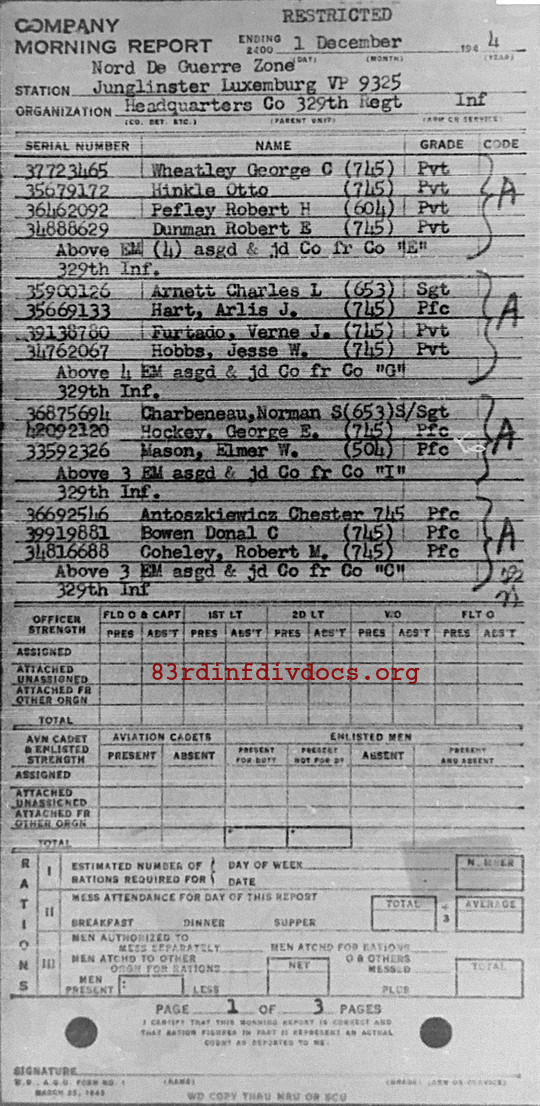 RESTRICTED
COMPANY
MORNING REPORT ENDING 2400 1 December 1944
(DAY) (MONTH) (YEAR)
Nord De Guerre Zone
STATION Junglinster Luxemburg VP 9325
ORGANIZATION Headquarters Co 329th Regt Inf
(CO. DET. ETC.) (PARENT UNIT) (ARM OR SERVICE)
SERIAL NUMBER NAME GRADE CODE
37723465 Wheatley George C (745) Pvt
35679172 Hinkle Otto (745) Pvt A
36462092 Pefley Robert H (604) Pvt
34888629 Dunman Robert E (745) Pvt
Above EM (4) asgd & jd Co fr Co "E"
329th Inf.
35900126 Arnett Charles L (653) Sgt
35669133 Hart, Arlis J. (745) Pfc A
39138780 Furtado, Verne J. (745) Pvt
34762067 Hobbs, Jesse W. (745) Pvt
Above 4 EM asgd & jd Co fr Co "G"
329th Inf.
36875694 Charbeneau,Norman S(653)S/Sgt
42092120 Hockey, George E. (745) Pfc A
33592326 Mason, Elmer W. (504) Pfc
Above 3 EM asgd & jd Co fr Co "I"
329th Inf.
36692546 Antoszkiewicz Chester 745 Pfc
39919881 Bowen Donal C (745) Pfc A
34816688 Coheley, Robert M. (745) Pfc
Above 3 EM asgd & jd Co fr Co "C"
329th Inf
OFFICER STRENGTH FLD O & CAPT 1ST LT 2D LT WO FLT O
PRES ABS'T PRES ABS'T PRES ABS'T PRES ABS'T PRES ABS'T
ASSIGNED
ATTACHED UNASSIGNED
83rdinfdivdocs.org
ATTACHED FR OTHER ORGN
TOTAL
AVN CADET & ENLISTED STRENGTH AVIATION CADETS ENLISTED MEN
PRESENT ABSENT PRESENT FOR DUTY PRESENT NOT FOR DY ABSENT PRESENT AND ABSENT
ASSIGNED
ATTACHED UNASSIGNED
ATTACHED FR OTHER ORGN
TOTAL
RATIONS
I ESTIMATED NUMBER OF RATIONS REQUIRED FOR DAY OF WEEK DATE NUMBER
II MESS ATTENDANCE FOR DAY OF THIS REPORT TOTAL ÷ 3 AVERAGE
BREAKFAST DINNER SUPPER
III MEN AUTHORIZED TO MESS SEPARATELY MEN ATCHD FOR RATIONS
MEN ATCHD TO OTHER ORGN FOR RATIONS NET O & OTHERS MESSED TOTAL
MEN PRESENT LESS PLUS
PAGE 1 OF 3 PAGES
I CERTIFY THAT THIS MORNING REPORT IS CORRECT AND
THAT RATION FIGURES IN PART III REPRESENT AN ACTUAL
COUNT AS REPORTED TO ME.
SIGNATURE
W.D., A.G.O. FORM NO. 1 (NAME) (GRADE) (ARM OR SERVICE)
MARCH 25, 1943
WD COPY THRU MRU OR SCU